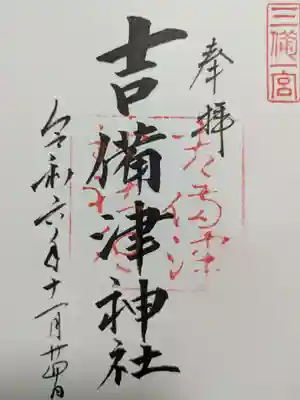 三備一宮
奉拝
吉備津神社
令和六年十一月廿四日